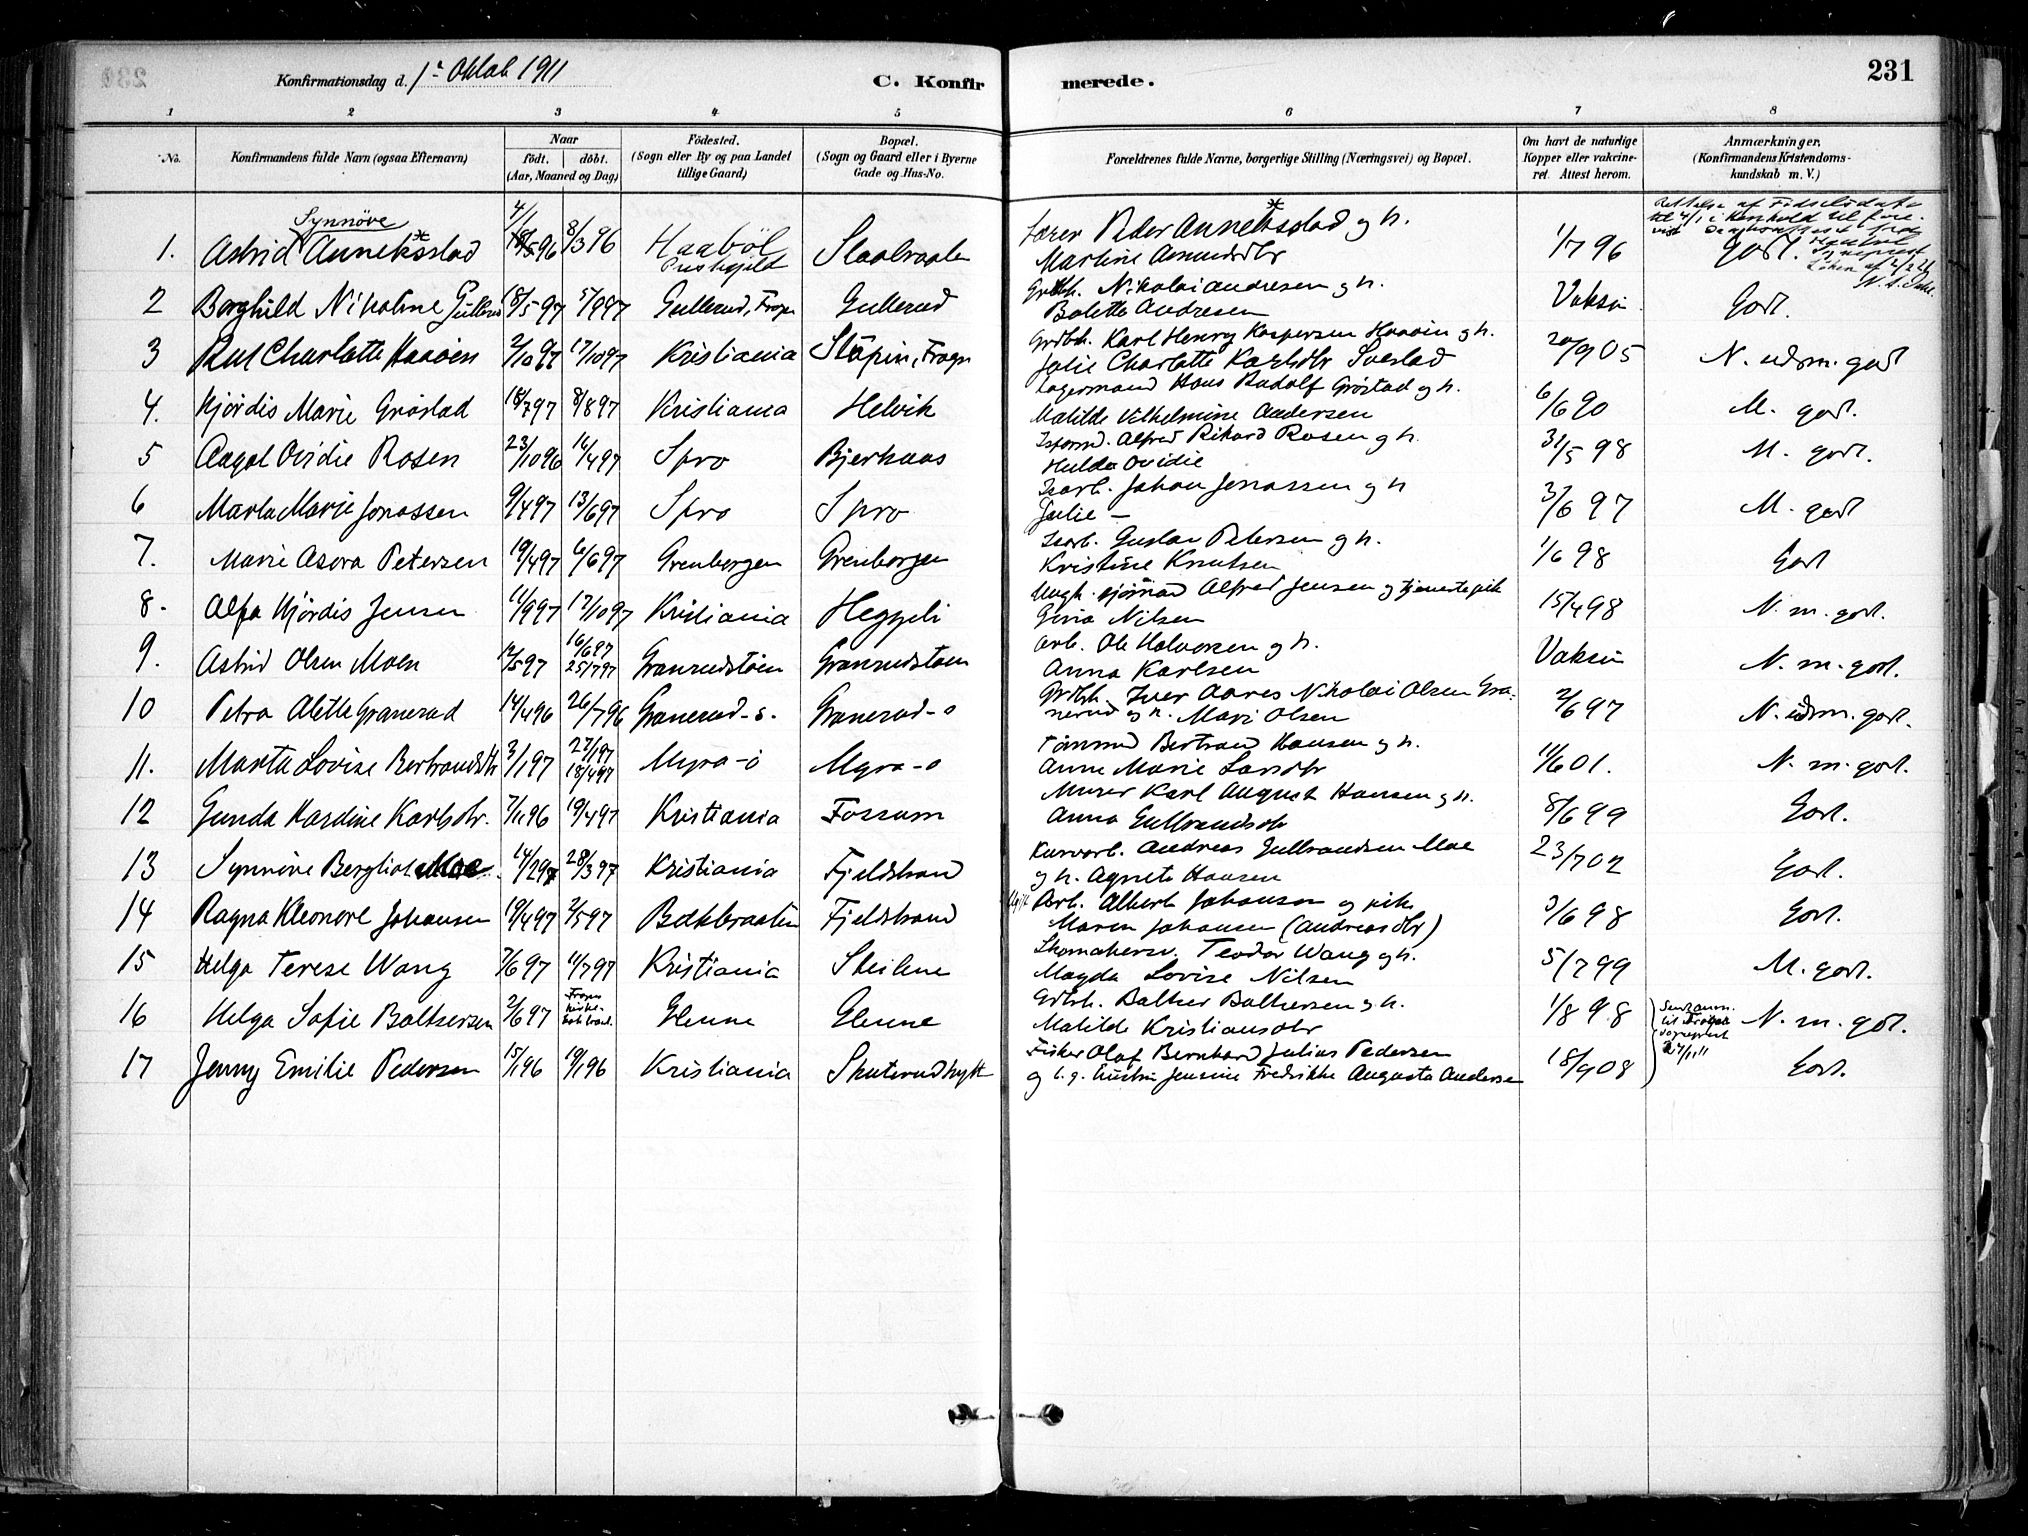 Konfirmationsdag d. 1ˢᵗ Oktob 1911
C. Konfirmerede.
231
1 2 3 4 5 6 7 8
No.
Konfirmandens fulde Navn (ogsaa Efternavn)
Naar
födt. döbt.
(Aar, Maaned og Dag)
Födested.
(Sogn eller By og paa Landet
tillige Gaard)
Bopæl.
(Sogn og Gaard eller i Byerne
Gade og Hus-No.
Forældrenes fulde Navne, borgerlige Stilling (Næringsvei) og Bopæl.
Om havt de naturlige
Kopper eller vakcine-
ret. Attest herom.
Anmærkninger,
(Konfirmandens Kristendoms-
kundskab m. V.)
Synnöve
1. Astrid Anneksstad 4/1 96 8/3 96 Haaböl Præstegjeld Lærer Peder Anneksstad og h. Martine Amundsdtr 1/7 96 Godt.
2 Borghild Nikoline Gullerud 18/5 97 5/9 97 Gullerud, Frogn Gullerud Grdbr. Nikolai Andresen og h. Bolette Andresen Vaksin Godt.
3 Rut Charlotte Haaöen 2/10 97 17/10 97 Kristiania Stöpin, Frogn Grdbr. Karl Henry Kaspersen Haaöen og h. Julie Charlotte Karlsdtr Svestad 20/9 05 N. udm. godt
4. Hjördis Marie Gröstad 18/7 97 8/8 97 Kristiania Helvik Lagermand Hans Rudolf Gröstad og h. Matilde Vilhelmine Andersen 6/6 90 M. godt.
5 Aagot Ovidie Rosen 23/10 96 16/4 97 Spro Bjerkaas Isform. Alfred Rikard Rosen og h. Hulda Ovidie 31/5 98 M. godt.
6 Marta Marie Jonassen 9/4 97 13/6 97 Spro Spro Isarb. Johan Jonassen og h Julie — 3/6 97 M. godt
7. Marie Asora Petersen 19/4 97 6/6 97 Grenborgen Grenborgen Isarb. Gustav Petersen og h. Kristine Knutsen 1/6 98 Godt
8. Alfa Hjördis Jensen 11/9 97 17/10 97 Kristiania Heggeli Ungk. sjömand Alfred Jensen og tjenestepike Gina Nilsen 15/4 98 N. m. godt.
9. Astrid Olsen Moen 12/5 97 16/6 97 25/7 97 Granrudstöen Granrudstöen Arb. Ole Halvorsen og h. Anna Karlsen Vaksin N. m. godt.
10 Petra Alette Granerud 14/4 96 26/7 96 Granerud-s. Granerud-s Grdbr. Iver Aares Nikolai Olsen Granerud og h. Mari Olsen 2/6 97 N. udm. godt.
11. Marta Lovise Bertrandsdtr 3/1 97 27/1 97 18/4 97 Myra-ö Myra-ö Tömmerm Bertrand Hansen og h. Anne Marie Larsdtr 11/6 01. N. m. godt.
12 Gunda Hardine Karlsdtr. 7/11 96 19/4 97 Kristiania Fossum Murer Karl August Hansen og h. Anna Gulbrandsdtr 8/6 99 Godt.
13 Synnöve Bergliot Moe 14/2 97 28/3 97 Kristiania Fjeldstrand Kurvarb. Andreas Gulbrandsen Moe og h. Agnete Hansen 23/7 02 Godt.
14 Ragna Kleonore Johansen 19/4 97 2/5 97 Bakbraaten Fjeldstrand Arb. Albert Johansen og pik. Maren Johansen (Andreasdtr) 3/6 98 Godt.
15 Helga Terese Wang 7/6 97 11/7 97 Kristiania Steilene Skomakersv. Teodor Wang og h. Magda Lovise Nilsen 5/7 99 M. godt.
16 Helga Sofie Baltsersen 2/6 97 Glenne Glenne Grdbr. Baltser Baltsersen og h. Matilde Kristiansdtr 1/8 98 N. m. godt.
17 Jenny Emilie Pedersen 15/1 96 19/1 96 Kristiania Skuterudhytt Fisker Olaf Bernhard Julius Pedersen og Jensine Fredrikke Augusta Andersen 18/9 08 Godt.